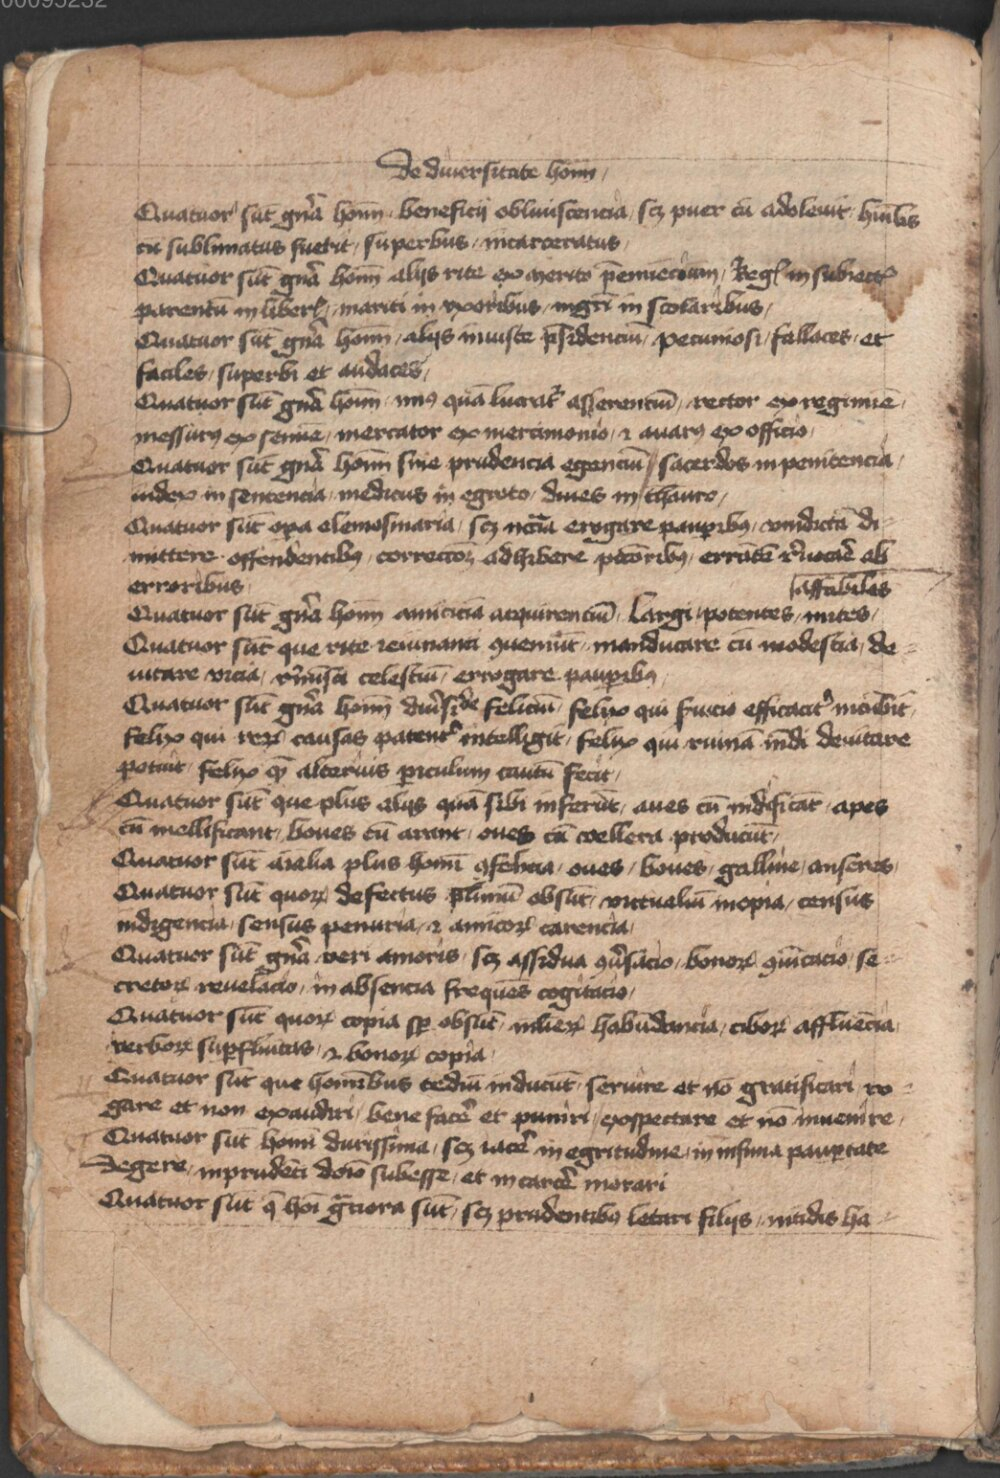 00095252
De diuersitate homĩ
Quatuor sũt gñã homĩ beneficij obliuiscencia / scꝫ puer cũ adoleuit / huĩlis
cũ sublimatus fuerit / superbus / incarceratus /
Quatuor sũt gñã homĩ alijs rite ex merito p̃eminẽcium / Reg in subiect
parentũ in liber / mariti in vxoribus / mgr̃i in scolaribus /
Quatuor sũt gñã homĩ / alijs iniuste p̃sidenciũ / pecuniosi / fallaces / et
faciles / superbi et audaces /
Quatuor sũt gñã homĩ / min9 quã lucrãt asserentiũ / rector ex regimĩe /
messurus ex semĩe / mercator ex mercimonio / ⁊ auarꝰ ex officio /
Quatuor sũt gñã homĩ sine prudencia egenciũ / sacerdos in penitencia /
iudex in sentencia / medicus in egroto / diues in thauro /
Quatuor sũt oꝑa elemosinaria / scꝫ nc̃ia erogare pauꝑibꝰ / vindictã di-
mittere offendentibꝰ / correctõꝫ adhibere pctõribꝰ / errãtẽ reuocare ab
erroribus / affabiles
Quatuor sũt gñã homĩ amiciciã acquirenciũ / Largi / potentes / mites /
Quatuor sũt que rite ieiunanti ꝯueniũt / manducare cũ modestia / de-
uitare vicia / celestiũ / errogare pauꝑibꝰ /
Quatuor sũt gñã homĩ diũsi de feliciũ / felix qui efficacit
felix qui reꝝ causas patent intelligit / felix qui ruinã mdi deuitare
potuit / felix quẽ alterius ꝑiculum cautũ fecit /
Quatuor sũt que plus alijs quã sibi inferũt / aues cũ nidificãt / apes
cũ mellificant / boues cũ arant / oues cũ vellera producũt /
Quatuor sũt aĩalia plus homĩ / oues / boues / galline / anseres /
Quatuor sũt quoꝝ defectus plimũ obsũt / victualiũ inopia / census
indigencia / sensus penuria / ⁊ amicoꝝ carencia /
Quatuor sũt gñã veri amoris / scꝫ assidua ꝯũsacio / bonoꝝ ꝯmũicacio / se-
cretoꝝ reuelacio / in absencia frequẽs cogitacio /
Quatuor sũt quoꝝ copia sꝑ obsũt / muliẽꝝ habũdancia / ciboꝝ affluẽcia /
verboꝝ suꝑfluitas / ⁊ bonoꝝ copia /
Quatuor sũt que homĩbus tediũ inducũt / seruire et nõ gratificari / ro-
gare et non exaudiri / bene facẽ et puniri / exspectare et nõ inuenire /
Quatuor sũt homĩ durissima / scꝫ iacẽ in egritudine / in infima pauꝑtate
degere / inprudẽti dõio subesse / et in carcẽ morari
Quatuor sũt q̃ hoĩ grãciora sũt / scꝫ prudentibꝰ letari filijs / nitidis ha-